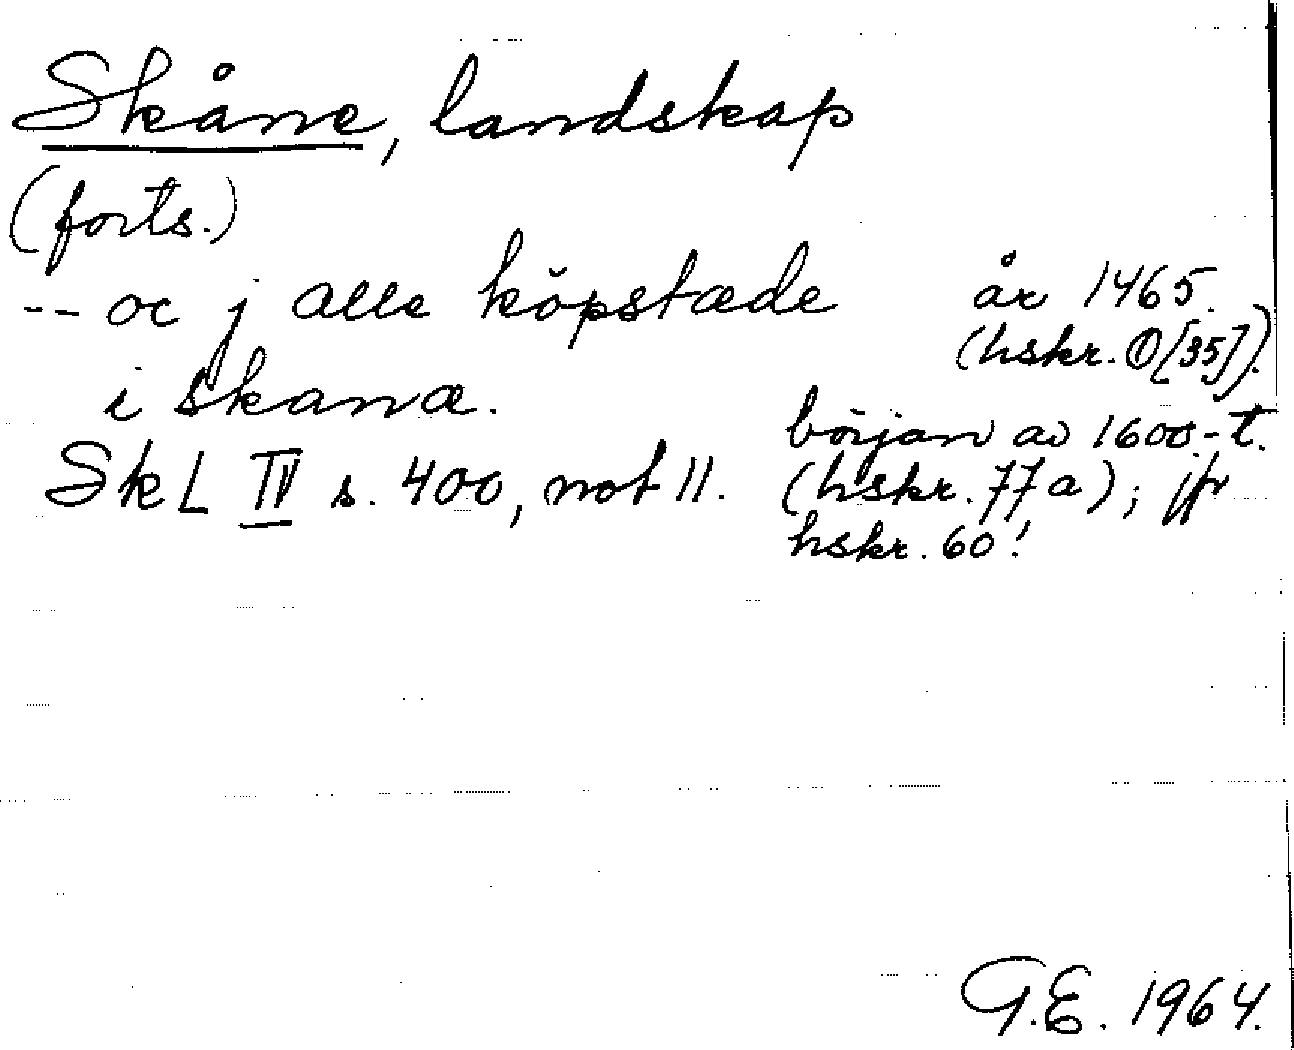 Skåne, landskap
(forts.)
-- oc j alle köpstæde
i skanæ.
år 1465.
(hskr. ①[35]).
Sk L IV s. 400, not 11.
början av 1600-t.
(hskr. 77a); jfr
hskr. 60!
G.E. 1964.